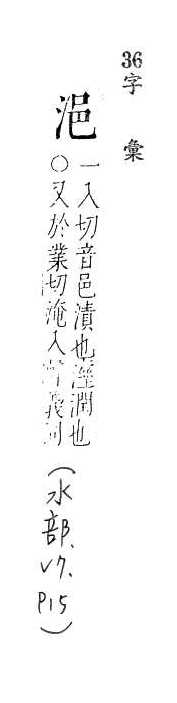 36
字彙
浥
一入切音邑漬也溼潤也
○又於業切淹入聲義同
(水部、V7、P15)